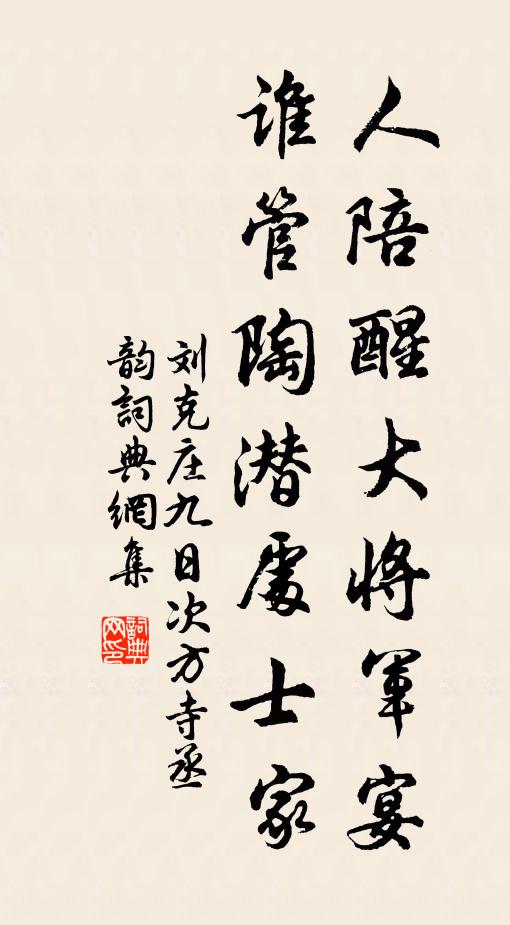 人陪醒大将军宴
谁管陶潜處士家
刘克庄九日次方寺丞
韵詞典網集
詞典网印